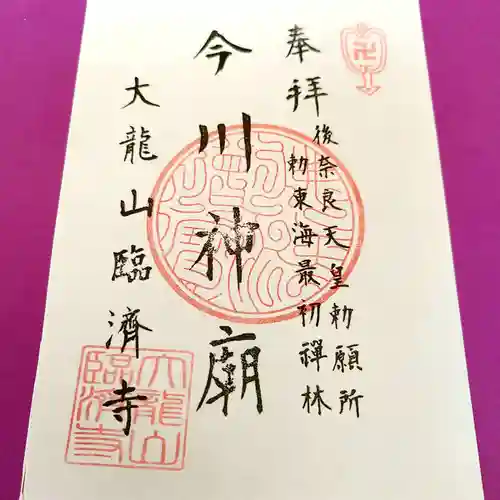 奉拝
後奈良天皇勅願所
勅東海最初禅林
今川神廟
大龍山臨濟寺
大龍山
臨済寺